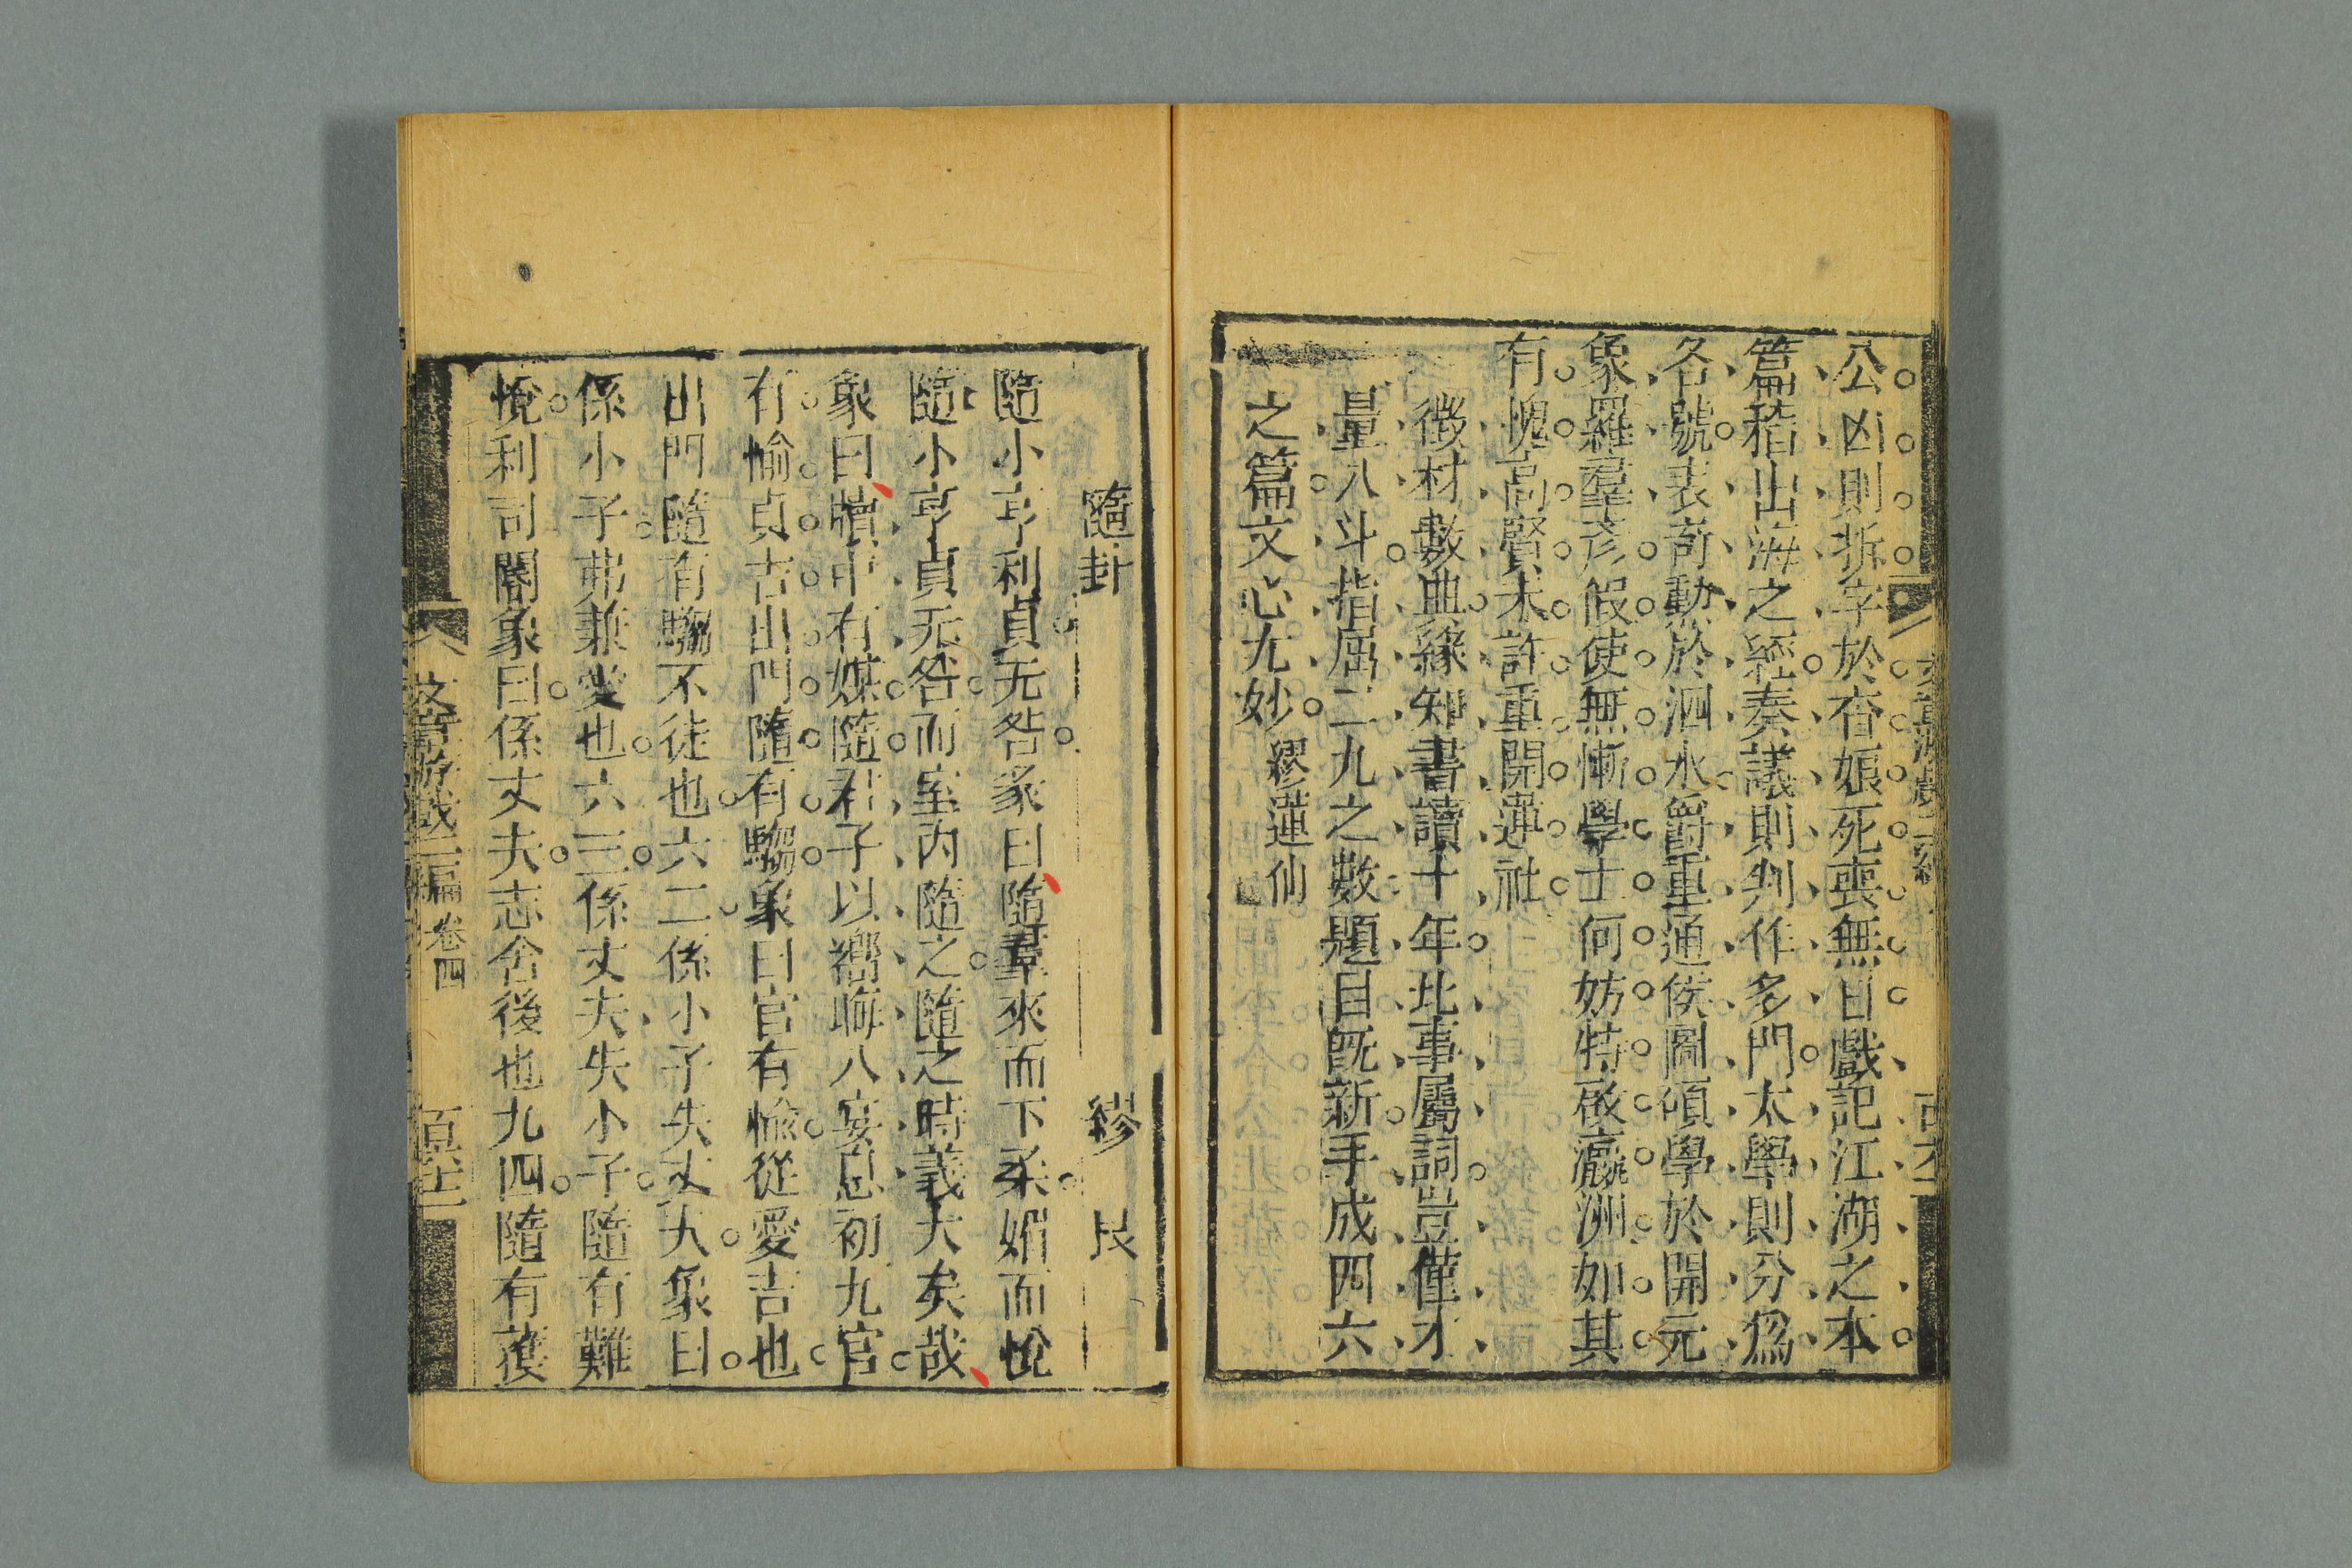 公凶則拆字於杳娘死喪無日戲記江湖之本
篇稽出海之經奏議則判作多門太學則分爲
名號表奇勳於泗水爵重通侯圖碩學於開元
象羅羣彥假使無慚學士何妨特啟瀛洲如其
有愧高賢未許重開蓮社
徵材數典緣知書讀十年比事屬詞豈僅才
量八斗指屈二九之數題目既新手成四六
之篇文心尤妙 繆蓮仙
隨卦 繆艮
隨小亨利貞无咎彖曰隨羣來而下柔媚而悅
隨小亨貞无咎而室內隨之隨之時義大矣哉
象曰牘中有媒隨君子以嚮晦入宴息初九官
有愉貞吉出門隨有騶象曰官有愉從愛吉也
出門隨有騶不徒也六二係小子失丈夫象曰
係小子弗兼愛也六三係丈夫失小子隨有難
悅利司閽象曰係丈夫志舍後也九四隨有獲
文章游戲二編 卷四